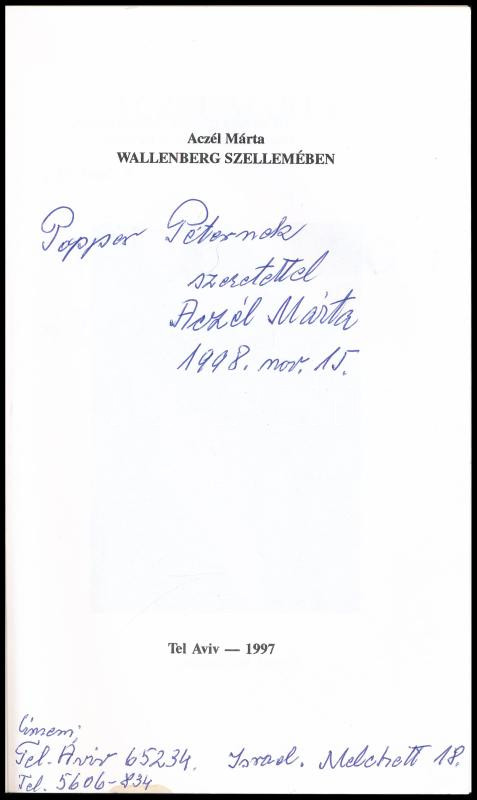 Aczél Márta
WALLENBERG SZELLEMÉBEN
Popper Péternek
szeretettel
Aczél Márta
1998. nov. 15.
Tel Aviv — 1997
Címem:
Tel-Aviv 65234. Israel. Melchett 18.
Tel. 5606-834